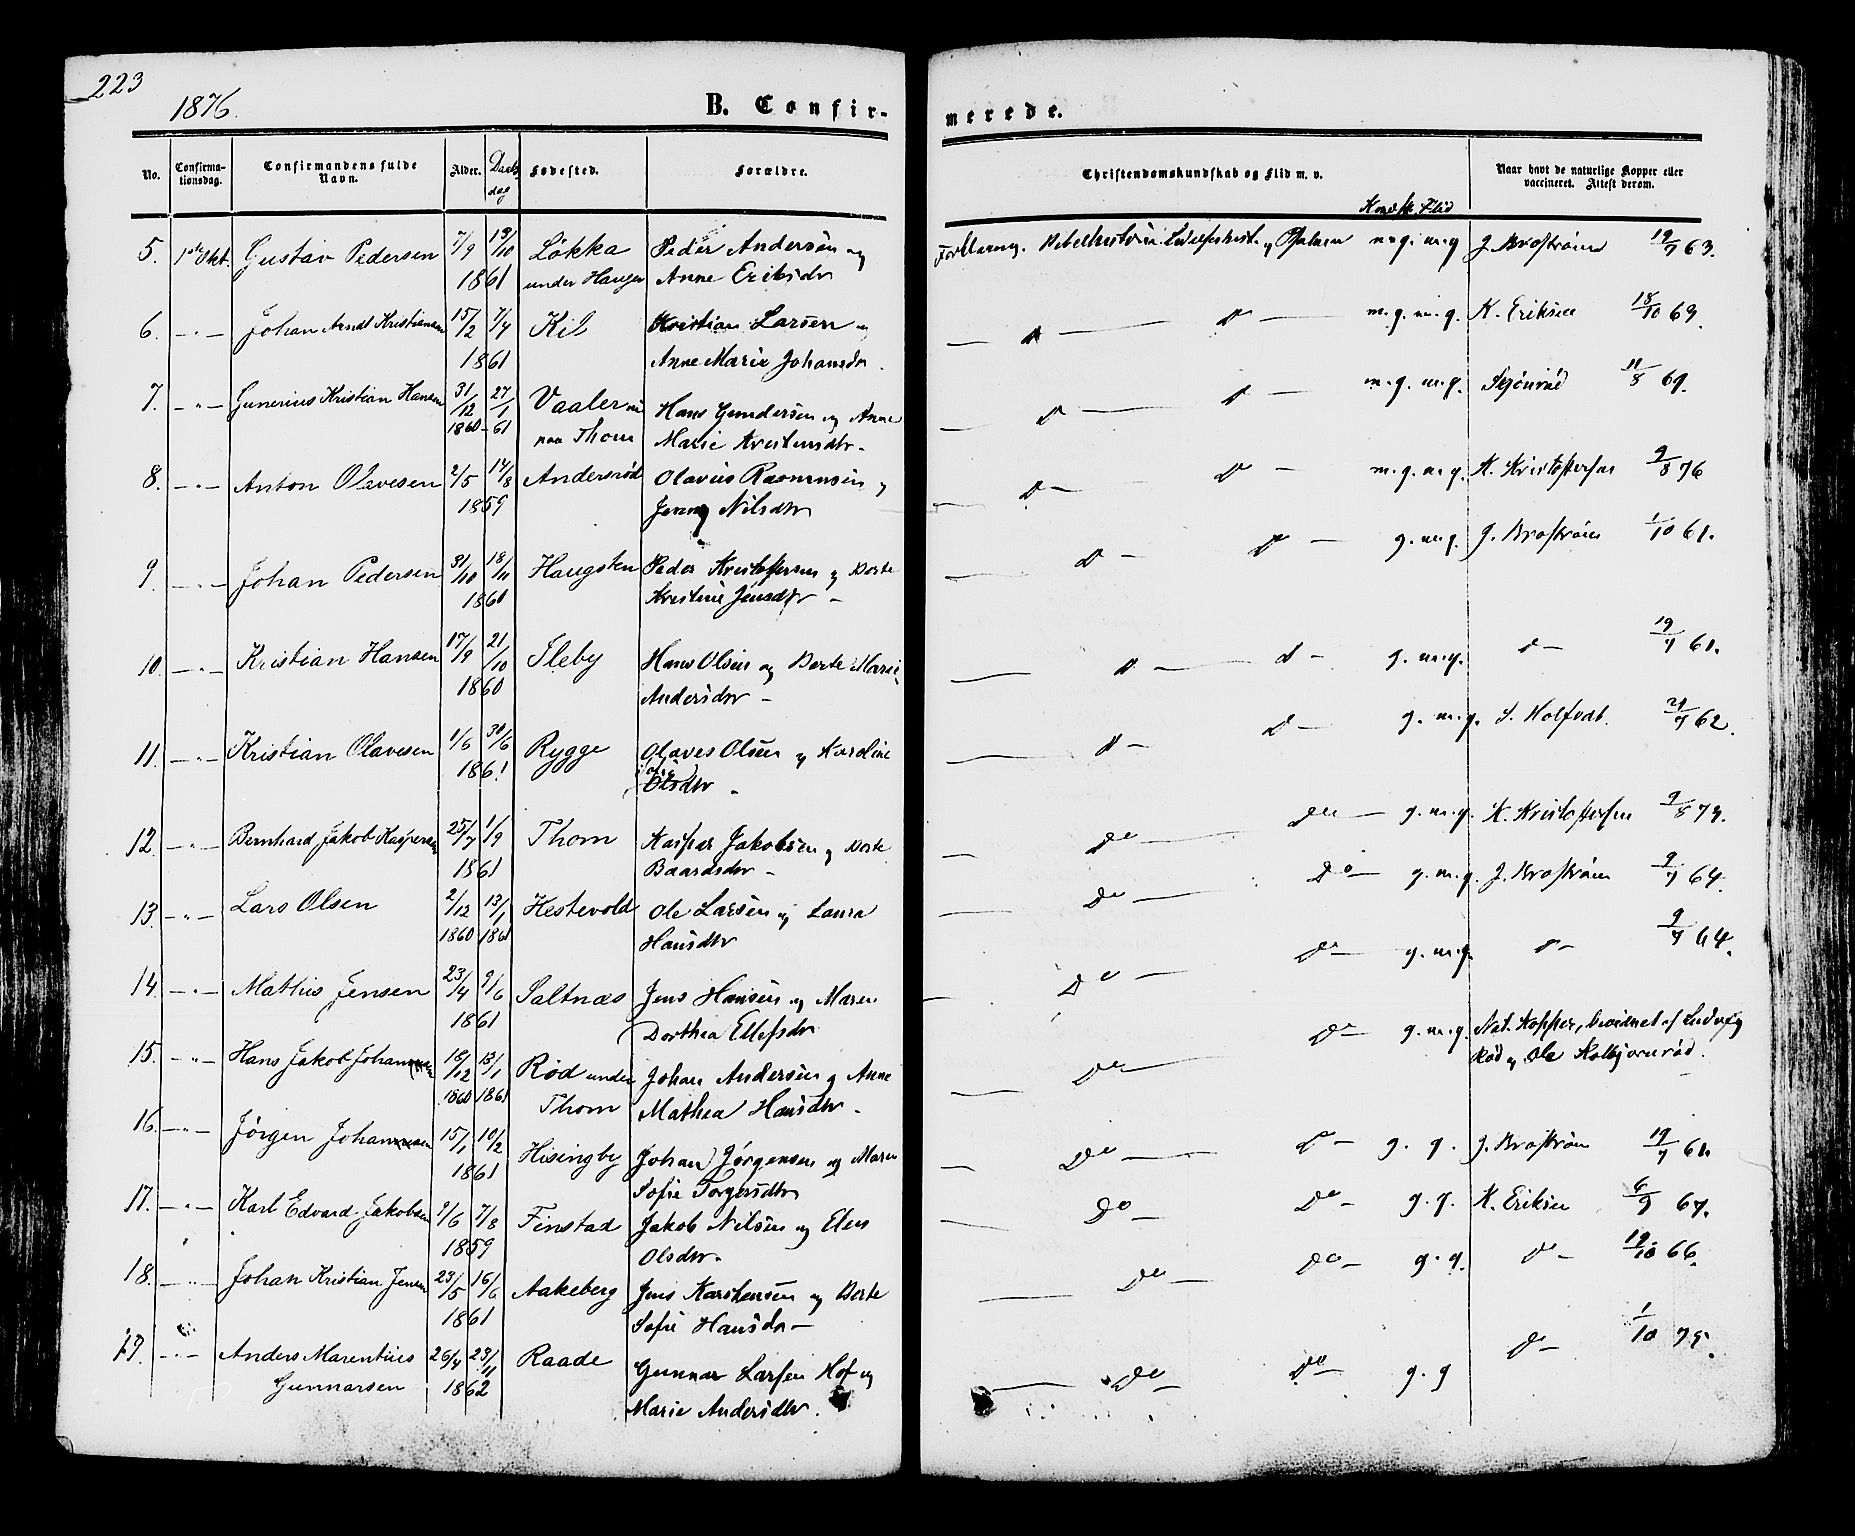 223
1876.
B. Confir-
merede.
No.
Confirma-
tionsdag.
Confirmandens fulde
Navn.
Alder.
Daabs
dag
Fødested.
Forældre.
Christendomskundskab og Flid m. v.
Kundsk. Flid
Naar havt de naturlige Kopper eller
vaccineret. Attest derom.
5. 1ste Okt. Gustav Pedersen 7/9 13/10 Løkka Peder Andersen og
1861 under Haugen Anne Eriksdr
Forklaring. Bibelhistorie Psalmer m.g. m.g J. Brostrøm 19/7 63.
6. — " — Johan Arndt Kristiansen 15/2 7/4 Kil Kristian Larsen og
1861 Anne Marie Johansdr.
— D — D — m.g. m.g. K. Eriksen 18/10 69.
7. — " — Gunerius Kristian Hansen 31/12 27/1 Vaaler nu Hans Gundersen og Anne
1860 - 61 paa Thom Marie Kristensdtr.
— D — D — m.g. m.g. 11/8 69.
8. — " — Anton Olavesen 2/5 14/8 Andersrød Olavus Rasmussen og
1859 Jenny Nilsdtr
— D — D — m.g. m.g. K. Kristoffersen 9/8 76
9. — " — Johan Pedersen 31/10 18/11 Haugsten Peder Kristoffersen og Dorte
1860 Kristine Jensdtr —
— D — D — g. m.g. J. Brostrøm 1/10 61.
10. — " — Kristian Hansen 17/9 21/10 Ileby Hans Olsen og Dorte Marie
1860 Andersdtr —
— D — D — g. m.g. D — 19/7 61.
11. — " — Kristian Olavesen 1/6 30/6 Rygge Olaves Olsen og Karoline
1861 Olsdtr —
— D — D — g. m.g. S. Holfodt. 21/7 62.
12. — " — Bernhard Jakob Kaspersen 25/7 1/9 Thom Kasper Jakobsen og Dorte
1861 Baardsdtr —
— Do — Do — g. m.g. K. Kristoffersen 9/8 73.
13. — " — Lars Olsen 2/12 13/1 Hestevold Ole Larsen og Laura
1860 1861 Hansdtr
— Do — Do — g. m.g. J. Brostrøm 9/7 64.
14. — " — Mathis Jensen 23/4 9/6 Saltnæs Jens Hansen og Maren
1861 Dorthea Ellefsdtr
— Do — Do — g. m.g. D — 9/7 64.
15. — " — Hans Jakob Johansen 18/12 13/1 Rød under Johan Andersen og Anne
1860 1861 Thom Mathea Hansdtr.
— Do — Do — g. m.g. Nat. Kopper, bevidnet af Ludvig
Rød og Ole Kolbjørnrød.
16. — " — Jørgen Johansen 15/1 10/2 Hisingby Johan Jørgensen og Maren
1861 Sofie Torgersdtr
— Do — D — g. g. J. Brostrøm 19/7 61.
17. — " — Karl Edvard Jakobsen 9/6 7/8 Finstad Jakob Nilsen og Elen
1859 Olsdtr.
— Do — Do — g. g. K. Eriksen 6/9 67.
18. — " — Johan Kristian Jensen 23/5 16/6 Aakeberg Jens Karstensen og Dorte
1861 Sofie Hansdr —
— Do — Do — g. g. D — 19/10 66.
19. — " — Anders Marentius 26/4 23/11 Raade Gunnar Larsen Hof og
Gunnarsen 1862 Marie Andersdtr.
— Do — Do — g. g D — 1/10 75.